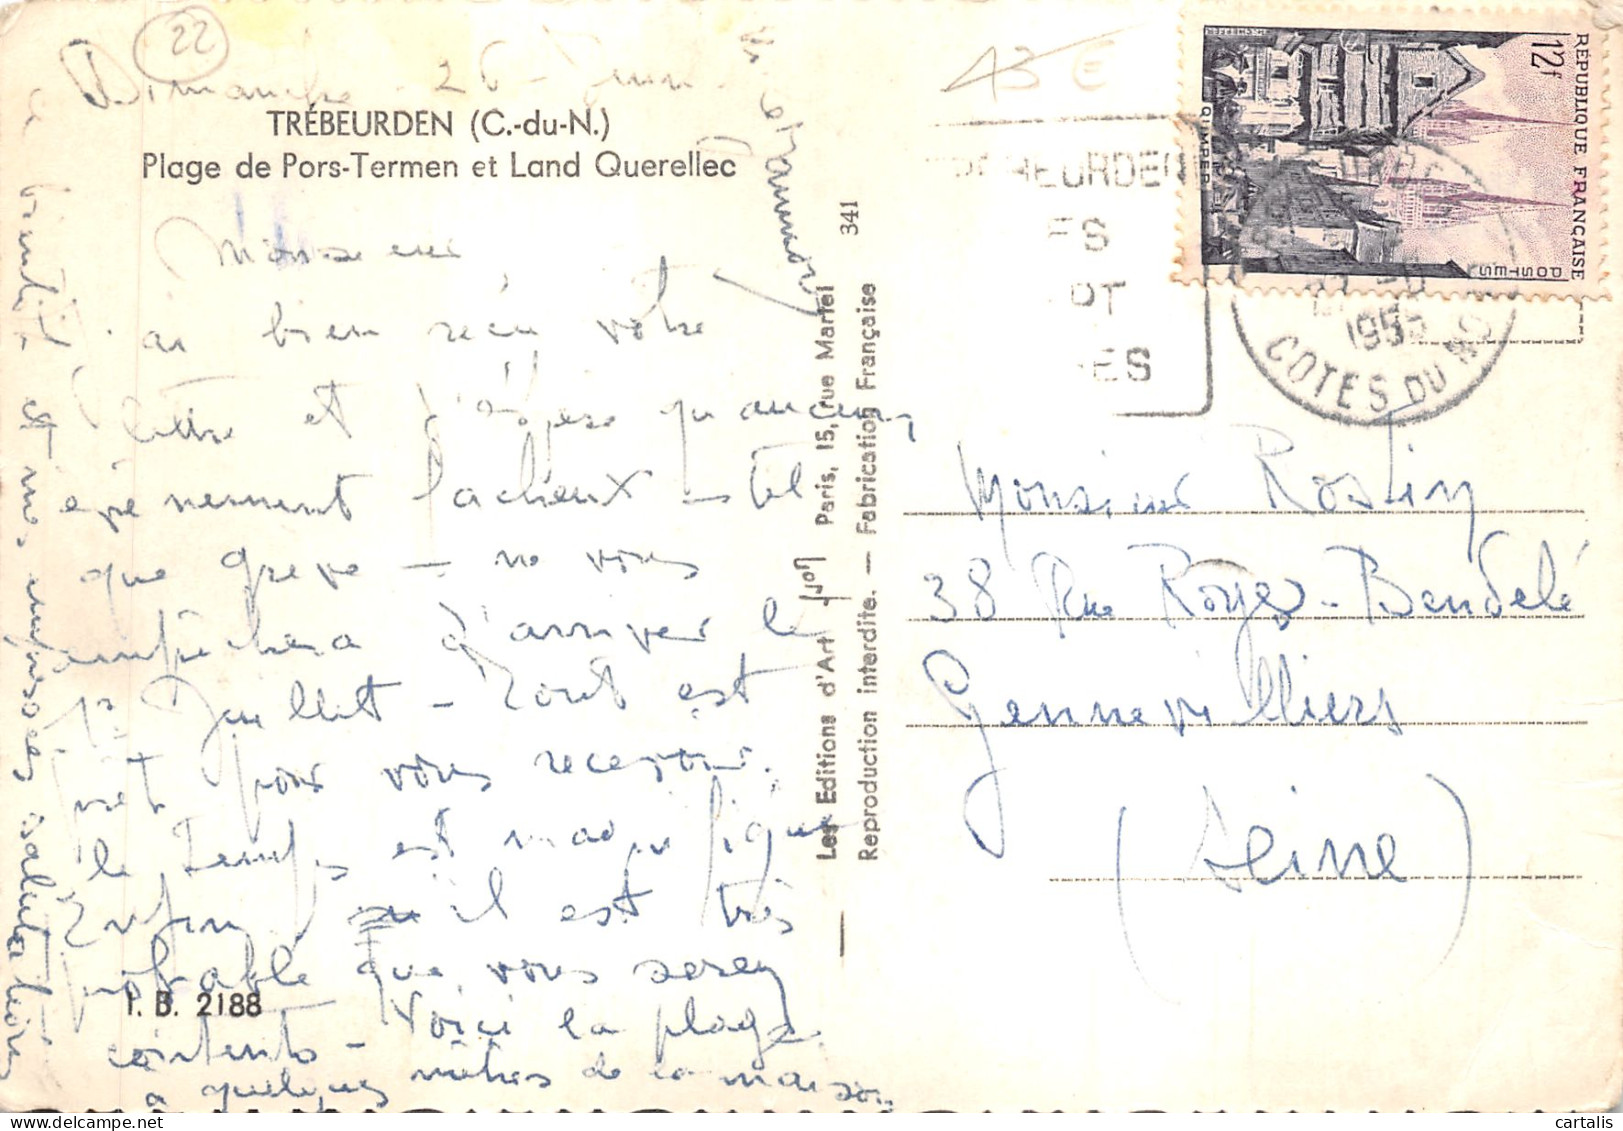 22
Dimanche 26 Juin
TRÉBEURDEN (C.-du-N.)
Plage de Pors-Termen et Land Querellec
Monsieur
J'ai bien reçu votre
lettre et j'espère qu'aucun
événement fâcheux - tel
que grève - ne vous
empêchera d'arriver le
1er Juillet - Tout est
prêt pour vous recevoir.
le Temps est magnifique
Enfin, il est très
probable que vous serez
contents - Voici la plage
à quelques mètres de la maison.
à bientôt et mes meilleures salutations
I. B. 2188
Les Editions d'Art Yvon Paris, 15, rue Martel
Reproduction interdite. — Fabrication Française
341
13 €
ES
COTES DU NORD
RÉPUBLIQUE FRANÇAISE
12f
POSTES
QUIMPER
Monsieur Roslin
38 Rue Royer-Bendelé
Gennevilliers
(Seine)
cartalis